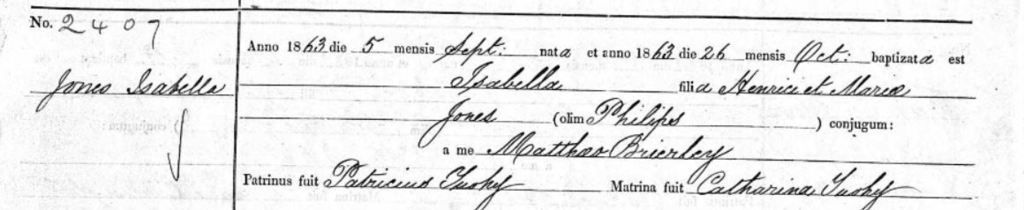 No. 2407
Jones Isabella
Anno 1863 die 5 mensis Sept: nata et anno 1863 die 26 mensis Oct: baptizata est
Isabella filia Henrici et Mariæ
Jones (olim Philips ) conjugum:
a me Matthæo Brierley
Patrinus fuit Patricius Matrina fuit Catharina